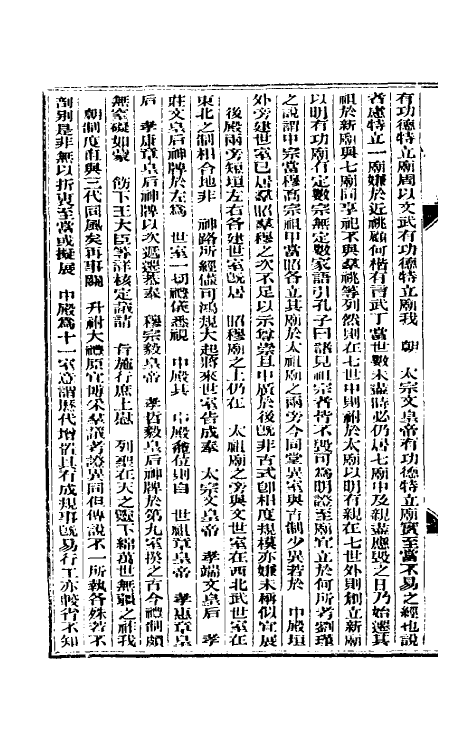 有功德特立廟周以文武有功德特立廟我 朝 太宗文皇帝有功德特立廟實至當不易之經也說
者慮特立一廟嫌於近祧顧何楷有言武丁當世數未盡時必仍居七廟中及親盡應毀之日乃始遷其
祖於新廟與七廟同享祀不與羣祧等列然則在七世中則祔於太廟以明有親在七世外則創立新廟
以明有功廟有定數宗無定數家語引孔子曰諸見祖宗者皆不毀可為明證至廟宜立於何所考劉瑾
之說謂中宗當穆高宗祖甲當昭各立其廟於太祖廟之兩旁今同堂異室與古制少異若於 中殿垣
外旁建世室已居羣昭羣穆之次不足以示尊崇且中廣於後旣非古式卽相度規模亦嫌未稱似宜展
後殿兩旁短垣左右各建世室旣居 昭穆廟之上仍在 太祖廟之旁與文世室在西北武世室在
東北之制相合地非 神路所經儘可鴻規大起將來世室皆成奉 太宗文皇帝 孝端文皇后 孝
莊文皇后神牌於左為 世室一切禮儀悉視 中殿其 中殿龕位則自 世祖章皇帝 孝惠章皇
后 孝康章皇后神牌以次遞遷恭奉 穆宗毅皇帝 孝哲毅皇后神牌於第九室揆之古今禮制頗
無窒礙如蒙 飭下王大臣等詳核定議請 旨施行庶上慰 列聖在天之靈下綿萬世無疆之祚我
朝制度直與三代同風矣再事關 升祔大禮原宜博采羣議考證異同但傳說不一所執各殊若不
剖別是非無以折衷至當或擬展 中殿為十一室意謂歷代增拓具有成規事旣易行工亦較省不知